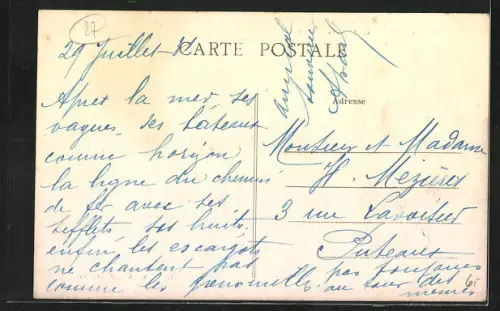 27
29 Juillet
CARTE POSTALE
Adresse
Après la mer, ses
vagues, ses bateaux
comme horizon
la ligne du chemin
de fer avec ses
sifflets ses bruits
enfin les escargots
ne chantent pas
comme les grenouilles pas toujours
au tour des
mêmes
Monsieur et Madame
H. Mézières
3 rue Lavoisier
Puteaux
souvenir